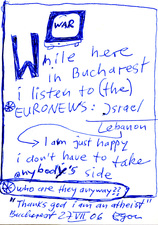 WAR
While here
in Bucharest
i listen to (the)
EURONEWS: Israel
Lebanon
I am just happy
i don't have to take
anybody's side
who are they anyway??
"Thanks god i am an atheist"
Bucharest 27 VII 06